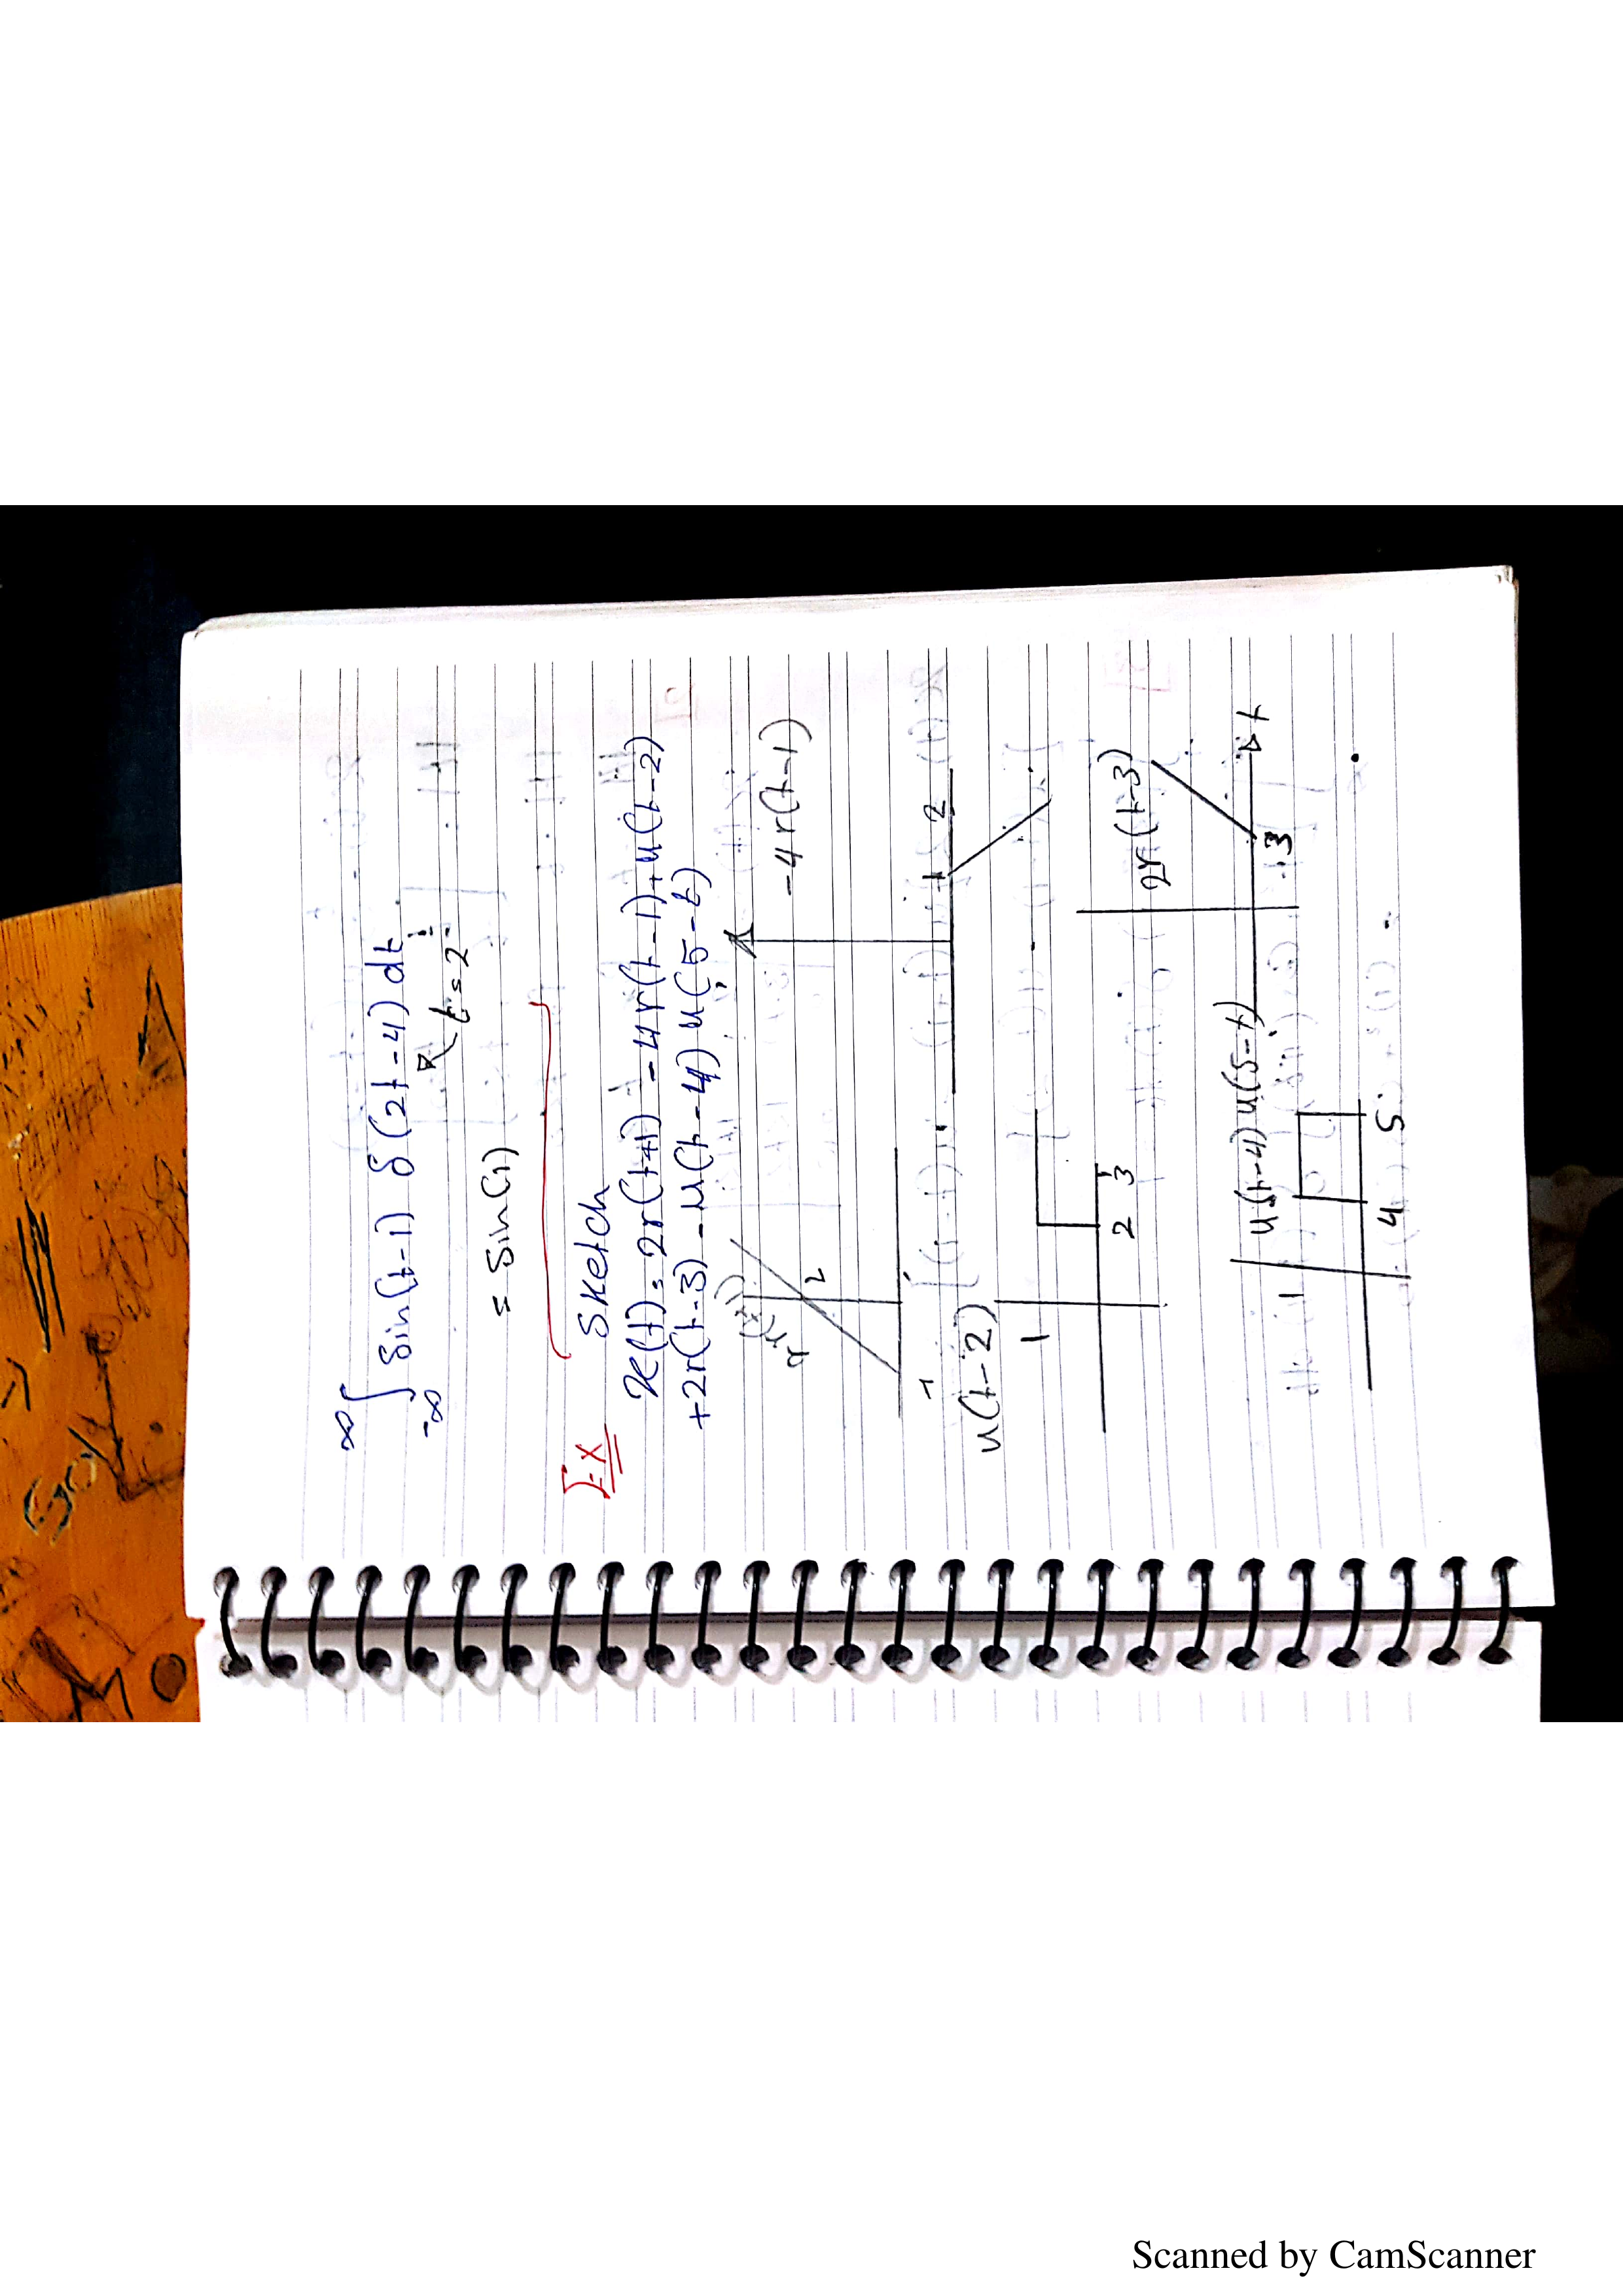 ∞
∫ Sin(t-1) δ(2t-4) dt
-∞
t = 2
= Sin(1)
Ex Sketch
x(t) = 2r(t+1) - 4r(t-1) + u(t-2)
+2r(t-3) - u(t-4) u(5-t)
-4r(t-1)
2
-1
1 2
u(t-2)
1
2 3
2r(t-3)
3
t
u(t-4) u(5-t)
1
4 5
Scanned by CamScanner